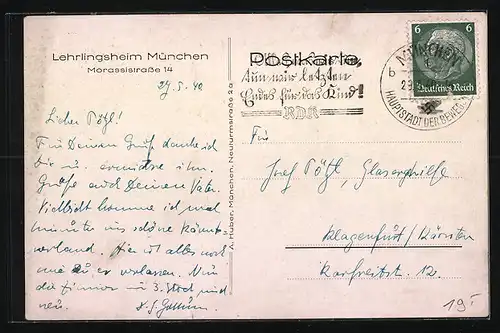 Lehrlingsheim München
Morassistraße 14
29.5.40
Lieber Pötzl!
Für Deinen Gruß danke ich
Dir u. erwidere ihn.
Grüße auch Deinen Vater.
Vielleicht komme ich mal
hinunter ins schöne Kärnt-
nerland. Hier ist alles noch
wie Du es verlassen. Nur
die Zimmer im 3. Stock sind
neu.
A. Huber, München, Neuturmstraße 2a
Postkarte
tun wir letzten
Endes für das Kind!
RDK
MÜNCHEN
HAUPTSTADT DER BEWEG
b
6 6
Deutsches Reich
An
Josef Pötzl, Glasergehilfe
Klagenfurt/Kärnten
Karfreitstr. 12.
19